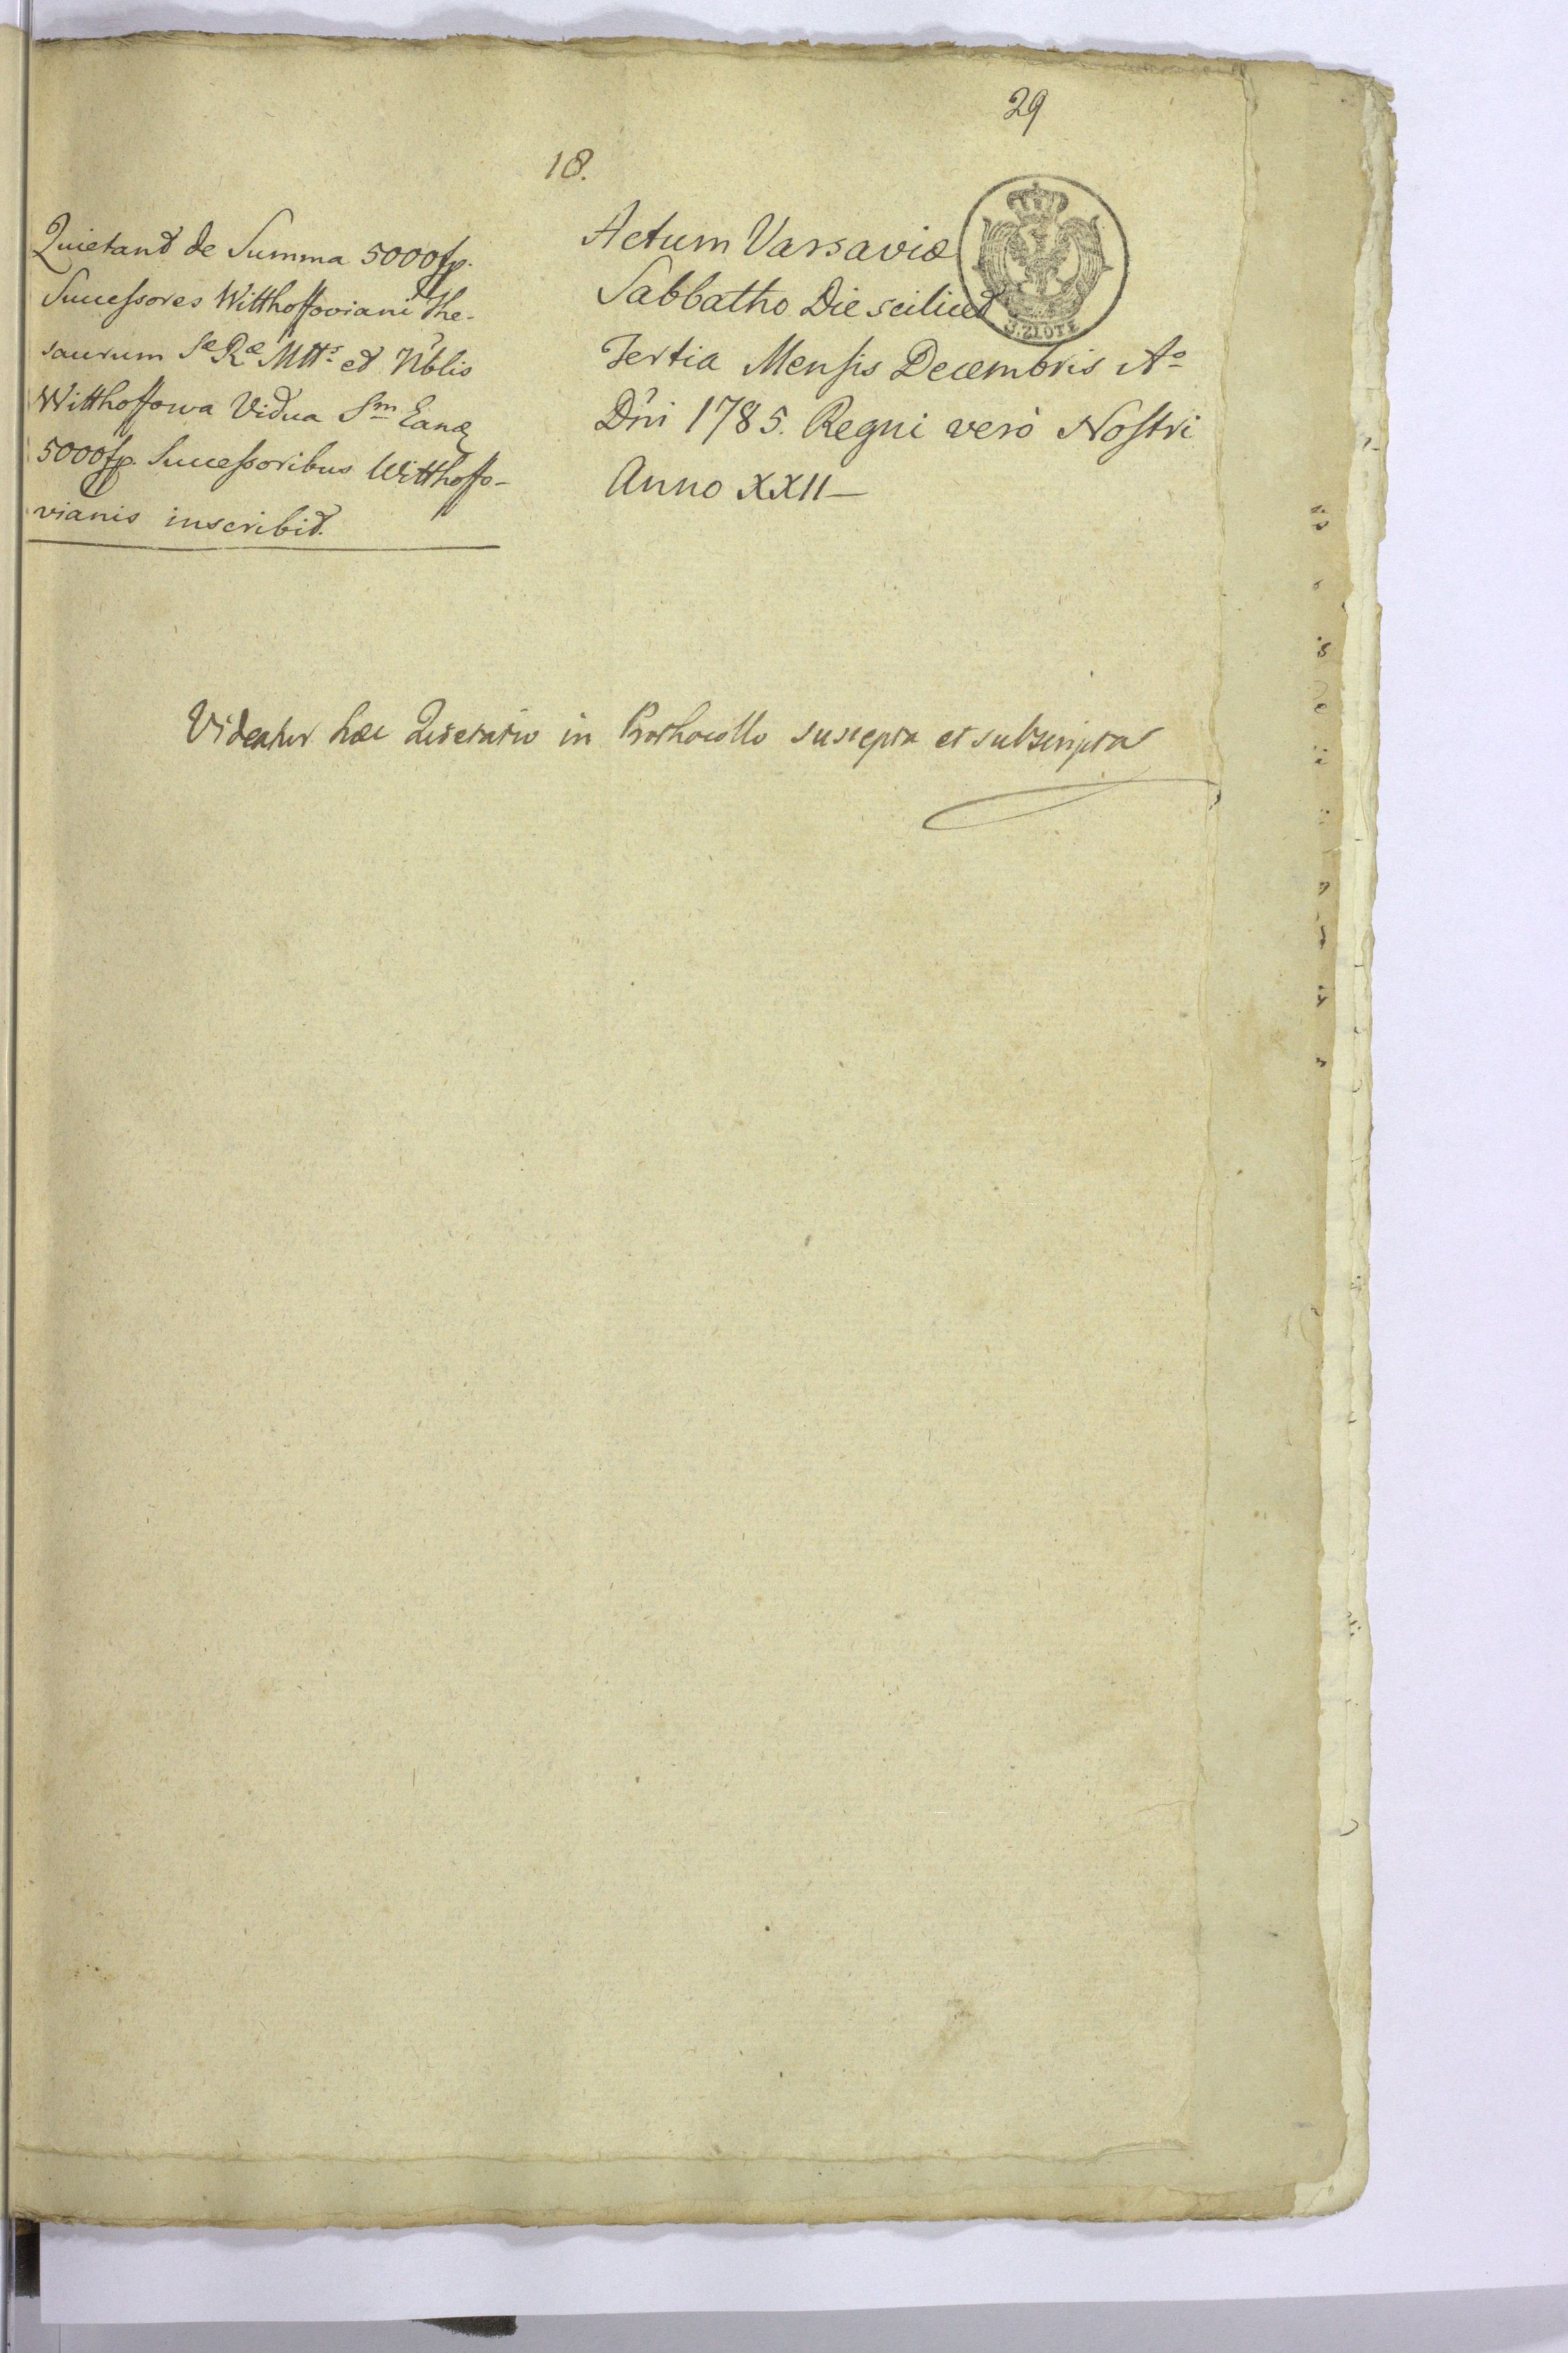 29
18.
Quietand de Summa 5000 fp.
Successores Witthoffoviani The-
saurum Sæ Ræ Mtts et Nblis
Witthoffowa Vidua Sm Eand
5000 fp. Successoribus Witthoffo-
vianis inscribit.
Actum Varsaviæ
Sabbatho Die scilicet
Tertia Mensis Decembris Ao
Dni 1785. Regni verò Nostri
Anno XXII—
3. ZŁOTE
Videatur hæc Quietatio in Prothocollo suscepta et subscripta